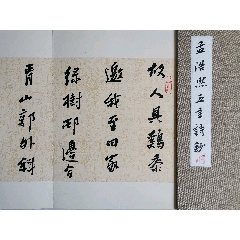 孟浩然五言詩鈔
故人具鷄黍
邀我至田家
綠樹邨邊合
青山郭外斜